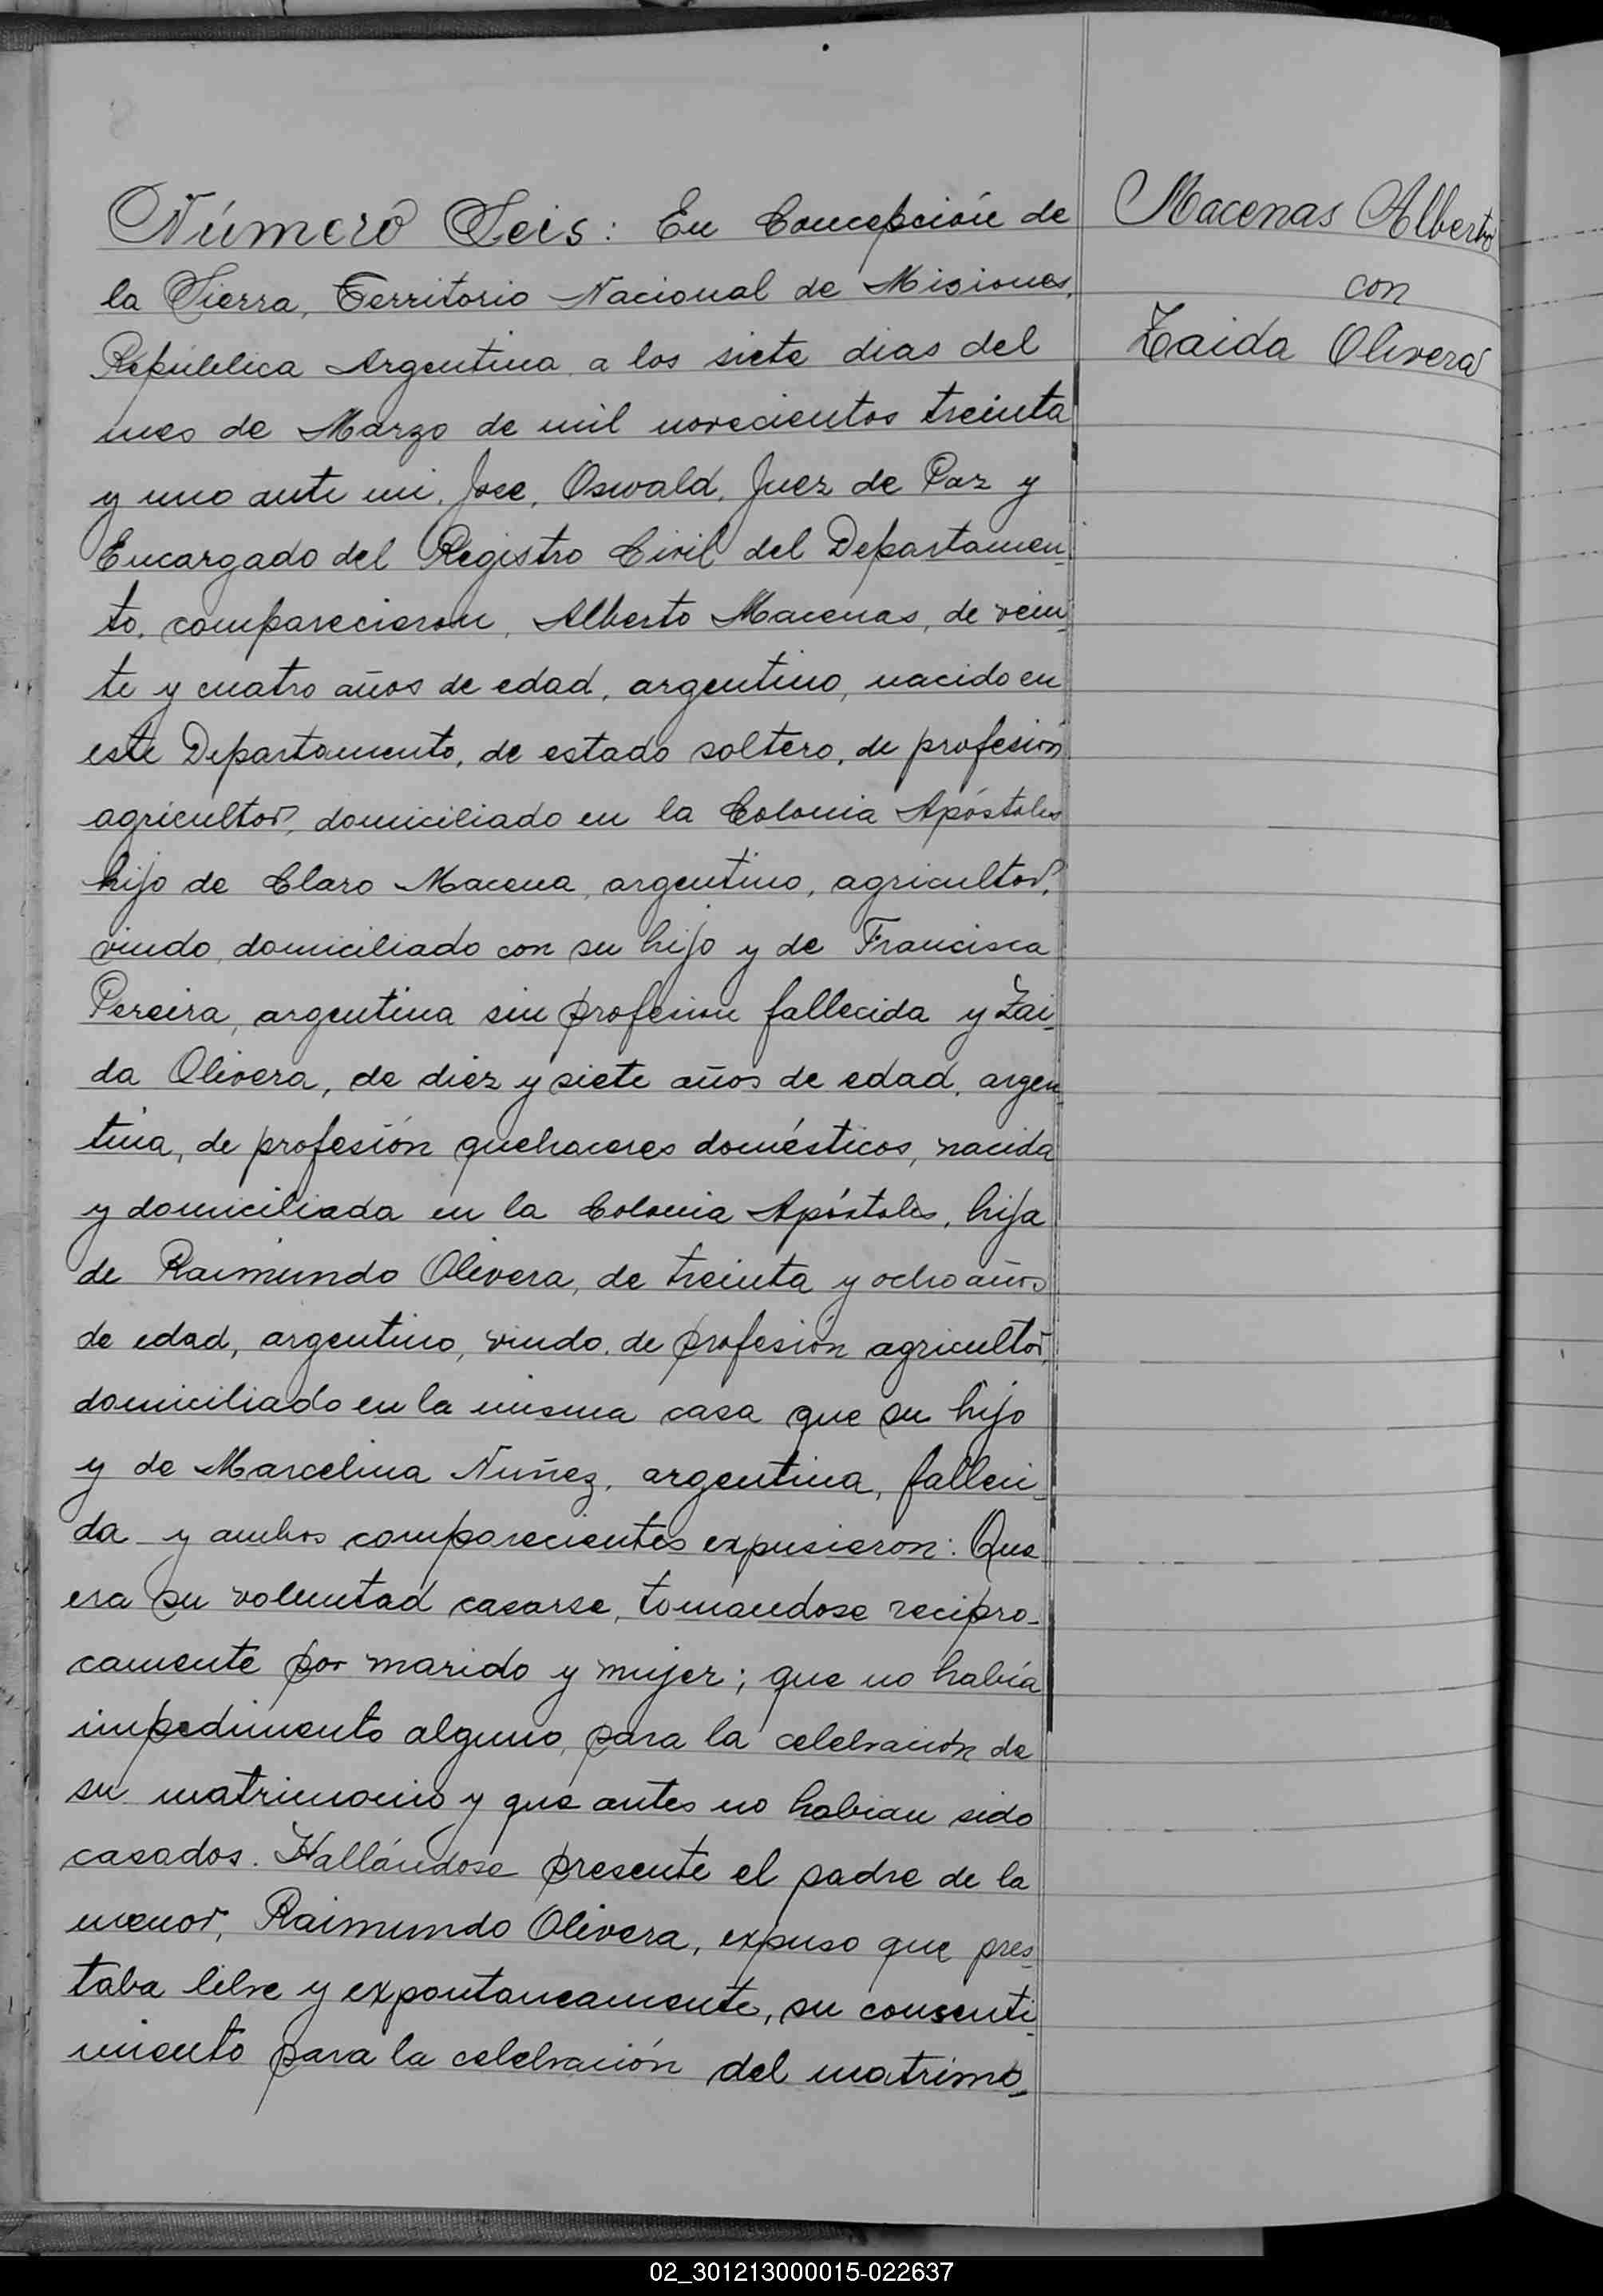 Número Seis: En Concepción de
la Sierra, Territorio Nacional de Misiones,
República Argentina a los siete dias del
mes de Marzo de mil novecientos treinta
y uno ante mi, José, Oswald, Juez de Paz y
Encargado del Registro Civil del Departamen-
to, comparecieron, Alberto Macenas, de vein-
te y cuatro años de edad, argentino, nacido en
este Departamento, de estado soltero, de profesión
agricultor, domiciliado en la Colonia Apóstoles
hijo de Claro Macena, argentino, agricultor,
viudo, domiciliado con su hijo y de Francisca
Pereira, argentina sin profesion fallecida y Zai-
da Olivera, de diez y siete años de edad, argen-
tina, de profesión quehaceres domésticos, nacida
y domiciliada en la Colonia Apóstoles, hija
de Raimundo Olivera, de treinta y ocho años
de edad, argentino, viudo, de profesión agricultor,
domiciliado en la misma casa que su hijo
y de Marcelina Nuñez, argentina, falleci-
da y ambos comparecientes expusieron: Que
era su voluntad casarse, tomandose recipro-
camente por marido y mujer; que no había
impedimento alguno, para la celebración de
su matrimonio y que antes no habian sido
casados. Hallándose presente el padre de la
menor, Raimundo Olivera, expuso que pres-
taba libre y expontaneamente, su consenti-
miento para la celebración del matrimo-
Macenas Alberto
con
Zaida Olivera
02_301213000015-022637